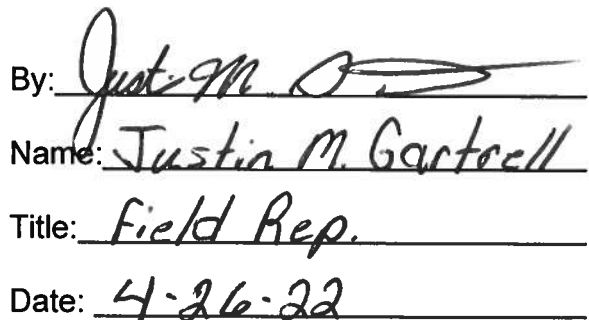 By: Justin M
Name: Justin M. Gartrell
Title: Field Rep.
Date: 4-26-22